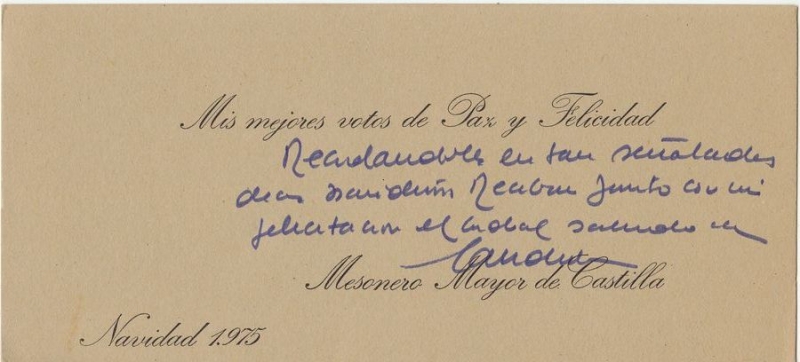 Mis mejores votos de Paz y Felicidad
Recordandoles en tan señalados
dias Reciban junto con mi
felicitacion el cordial saludo de
Candido
Mesonero Mayor de Castilla
Navidad 1.975